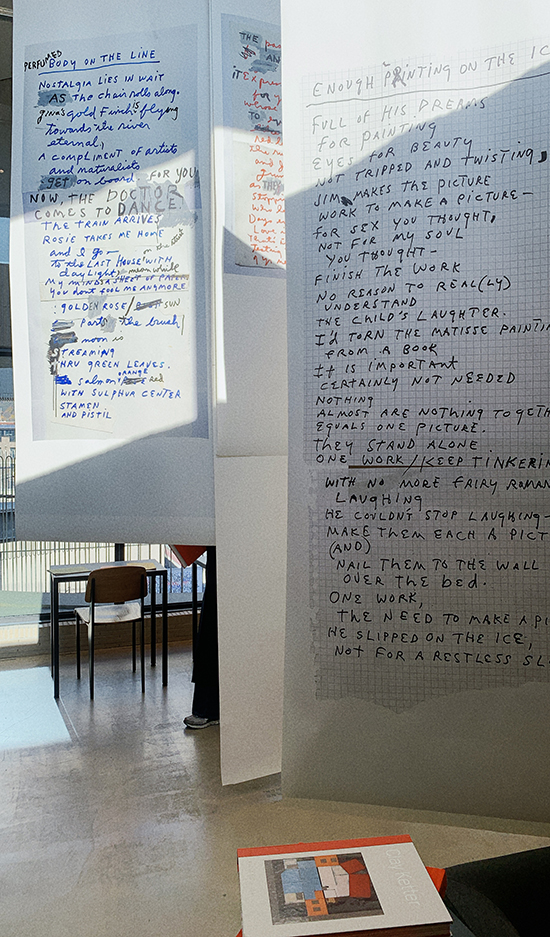 PERFUMED
BODY ON THE LINE
NOSTALGIA LIES IN WAIT
AS The chair rolls along.
gina's gold Finch is flying
towards the river
eternal,
A compliment of artists
and naturalists
get on board FOR YOU
NOW, THE DOCTOR
COMES TO DANCE
THE TRAIN ARRIVES
ROSIE TAKES ME HOME
and I go —
to the LAST HOUSE WITH
day light, mean while
MY MIND IS A SHEET OF PAPER
YOU DONT FOOL ME ANYMORE
: GOLDEN ROSE / SUN
Parts the brush
moon is
TREAMING
HRU GREEN LEAVES.
salmon ORANGE RED
WITH SULPHUR CENTER
STAMEN
AND PISTIL
THE pas
AN
IT EXPR
ENOUGH PAINTING ON THE IC
FULL OF HIS DREAMS
FOR PAINTING
EYES FOR BEAUTY
NOT TRIPPED AND TWISTING,
JIM MAKES THE PICTURE
WORK TO MAKE A PICTURE —
FOR SEX YOU THOUGHT,
NOT FOR MY SOUL
YOU THOUGHT —
FINISH THE WORK
NO REASON TO REAL(LY)
UNDERSTAND
THE CHILD'S LAUGHTER.
I'd TORN THE MATISSE PAINTIN
FROM A BOOK
It IS IMPORTANT
CERTAINLY NOT NEEDED
NOTHING
ALMOST ARE NOTHING TOGETH
EQUALS ONE PICTURE.
THEY STAND ALONE
ONE WORK / KEEP TINKERIN
WITH NO MORE FAIRY ROMAN
LAUGHING
HE COULDN'T STOP LAUGHING —
MAKE THEM EACH A PICT
(AND)
NAIL THEM TO THE WALL
OVER THE bed.
ONE WORK,
THE NEED TO MAKE A PI
HE SLIPPED ON THE ICE,
NOT FOR A RESTLESS SL
Jan Ketter